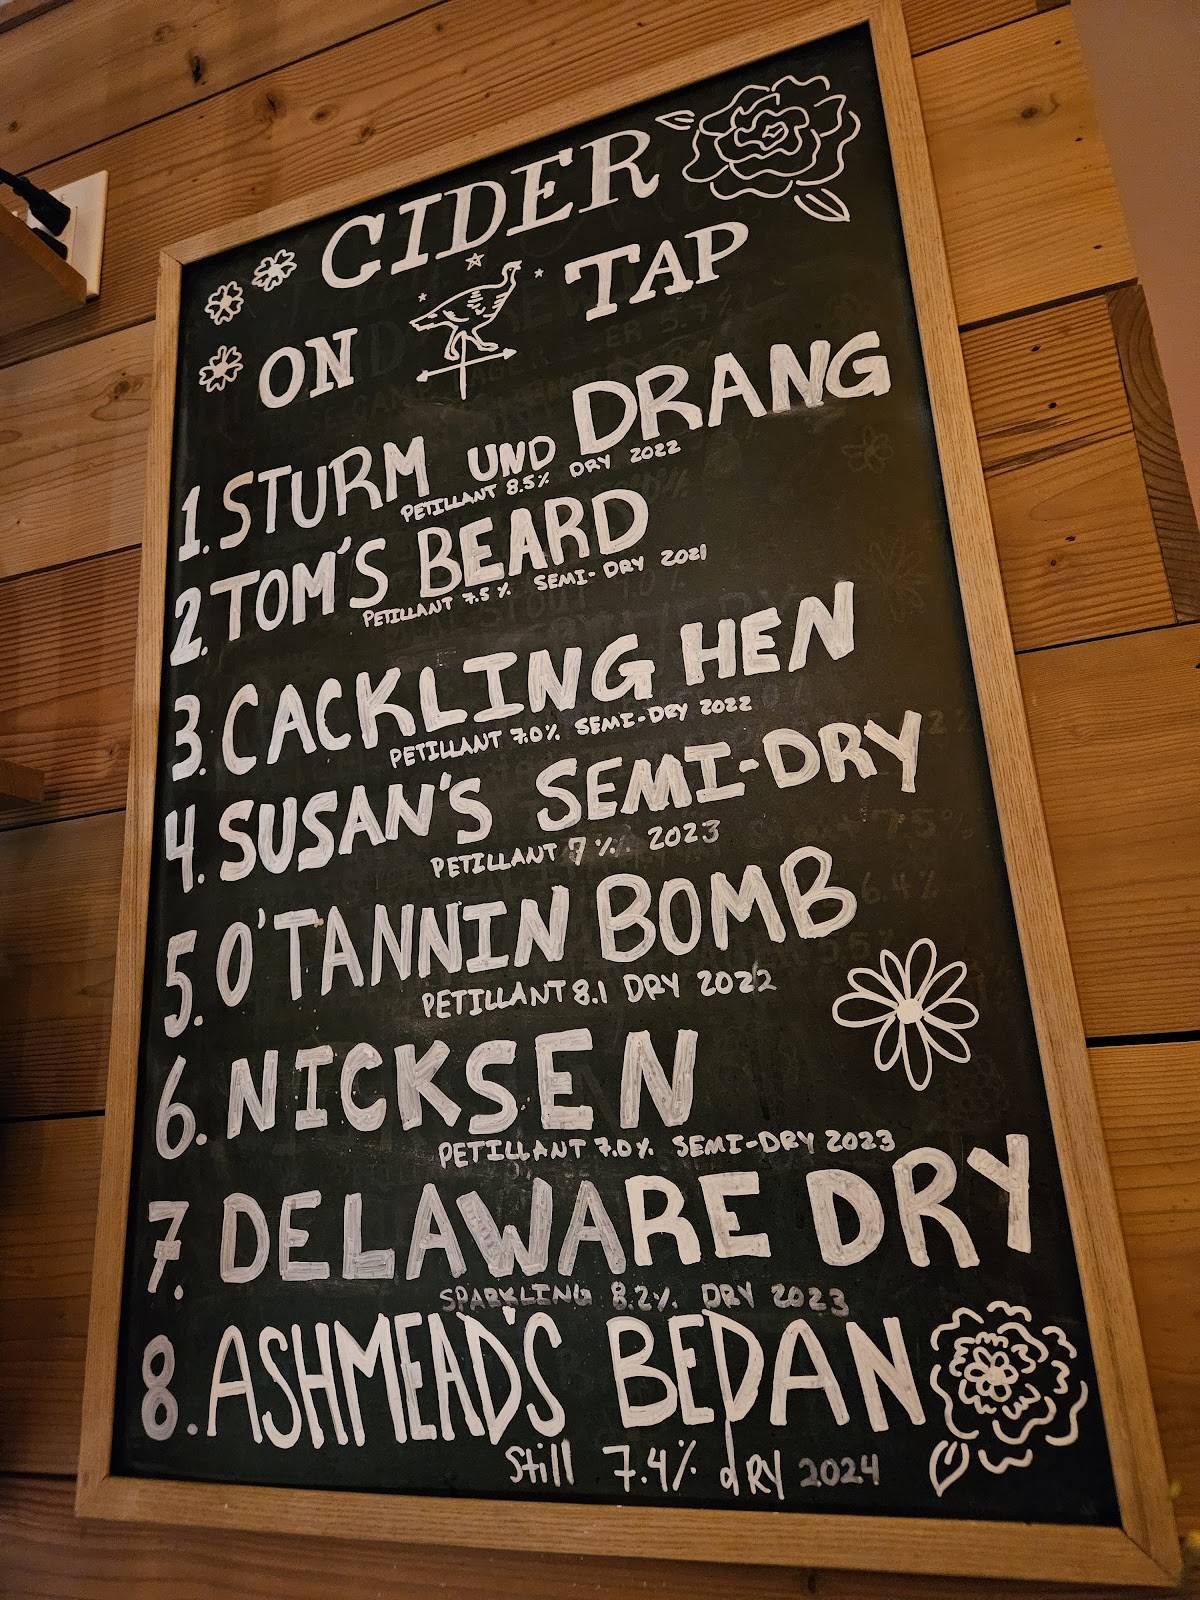 CIDER
ON TAP
1. STURM UND DRANG
PETILLANT 8.5% DRY 2022
2. TOM'S BEARD
PETILLANT 7.5% SEMI-DRY 2021
3. CACKLING HEN
PETILLANT 7.0% SEMI-DRY 2022
4. SUSAN'S SEMI-DRY
PETILLANT 7% 2023
5. O'TANNIN BOMB
PETILLANT 8.1 DRY 2022
6. NICKSEN
PETILLANT 7.0% SEMI-DRY 2023
7. DELAWARE DRY
SPARKLING 8.2% DRY 2023
8. ASHMEAD'S BEDAN
Still 7.4% dRY 2024